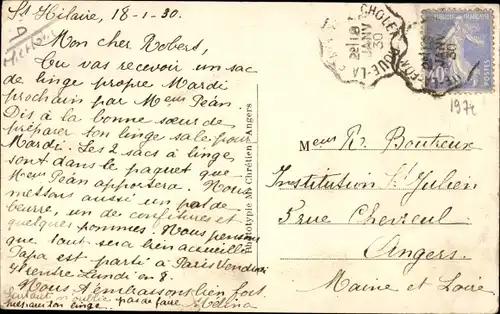 St Hilaire, 18-1-30.
Mon cher Robers,
Tu vas recevoir un sac
de linge propre Mardi
prochain par Meur Péan
Dis à la bonne sœur de
préparer ton linge sale pour
Mardi. Les 2 sacs à linge
sont dans le paquet que
Meur Péan apportera. Nous
mettons aussi un pot de
beurre, un de confitures et
quelques pommes. Nous pensons
que tout sera bien accueilli
Papa est parti à Paris Vendredi
et rentre Lundi
Nous t'embrassons bien fort.
pas de faire Mélina
ton linge
Phototypie Mo Chrétien Angers
CHOLET
18
JANV
30
40
1974
Meur R. Boutreux
Institution St Julien
5 rue Chevreul
Angers.
Maine et Loire